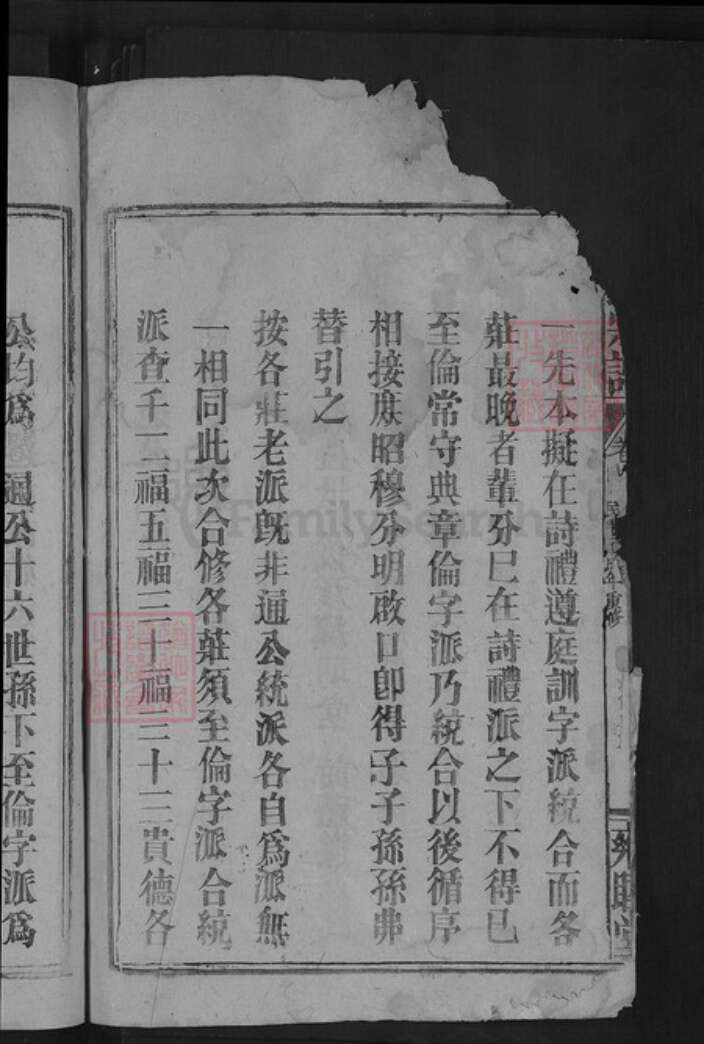 一先本擬在詩禮遵庭訓字派統合而各
莊最晚者輩分已在詩禮派之下不得已
至倫常守典章倫字派乃統合以後循序
相接庶昭穆分明啟口卽得子子孫孫弗
替引之
按各莊老派旣非通公統派各自爲派無
一相同此次合修各莊須至倫字派合統
派查千二福五福三十福三十三貴德各
公均爲 通公十六世孫下至倫字派爲
FamilySearch